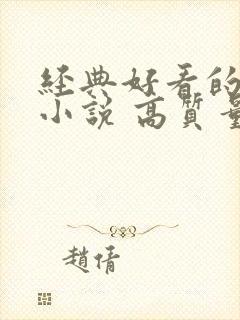 經典好看的
小說 高質量
趙倩